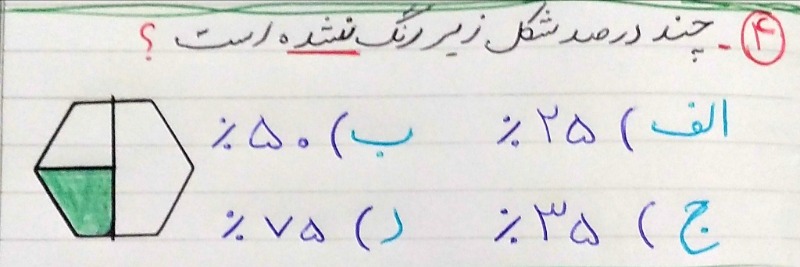 ۴- چند درصد شکل زیر رنگ نشده است ؟
الف) ۲۵ ٪ ب) ۵۰ ٪
ج) ۳۵ ٪ د) ۷۵ ٪